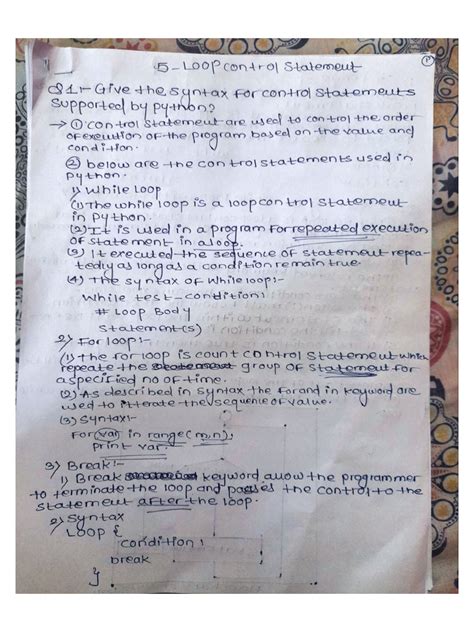 5-LOOP control Statement
Q1:- Give the syntax for control statements
supported by python?
→ ① control statement are used to control the order
of execution of the program based on the value and
condition.
② below are the control statements used in
Python.
1) While loop
(1) The while loop is a loop control statement
in python.
(2) It is used in a program for repeated execution
of statement in a loop.
(3) It executed the sequence of statement repea-
tedly as long as a condition remain true.
(4) The syntax of While loop:-
While test-condition:
# Loop Body
Statement(s)
2) For loop:-
(1) The for loop is count control statement which
repeate the group of statement for
a specified no of time.
(2) As described in syntax the for and in keyword are
used to itterate the sequence of value.
(3) Syntax:-
For var in range(m,n):
print var.
3) Break:-
1) Break keyword allow the programmer
to terminate the loop and passes the control to the
statement after the loop.
2) Syntax
Loop {
condition:
break
}